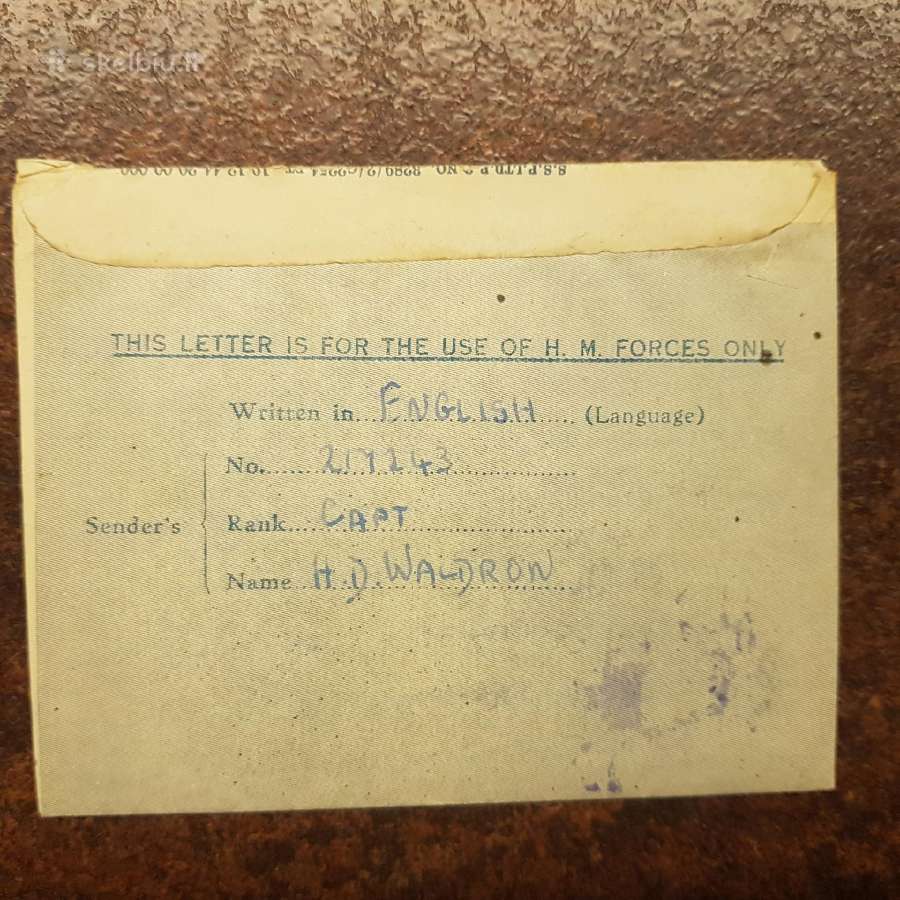 skelbiu.lt
S.S.P.LTD.P.2 NO. 8280/2/C2254 PT. 10.12.44 20.00.000
THIS LETTER IS FOR THE USE OF H. M. FORCES ONLY
Written in ENGLISH (Language)
No. 217243
Sender's Rank CAPT
Name H.D. WALDRON